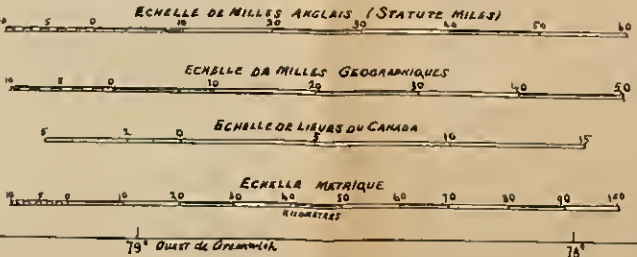 ECHELLE DE MILLES ANGLAIS (STATUTE MILES)
10 5 0 10 20 30 40 50 60
ECHELLE DE MILLES GEOGRAPHIQUES
10 5 0 10 20 30 40 50
ECHELLE DE LIEUES DU CANADA
5 2 0 5 10 15
ECHELLE METRIQUE
10 5 0 10 20 30 40 50 60 70 80 90 100
KILOMETRES
79° Ouest de Greenwich 78°